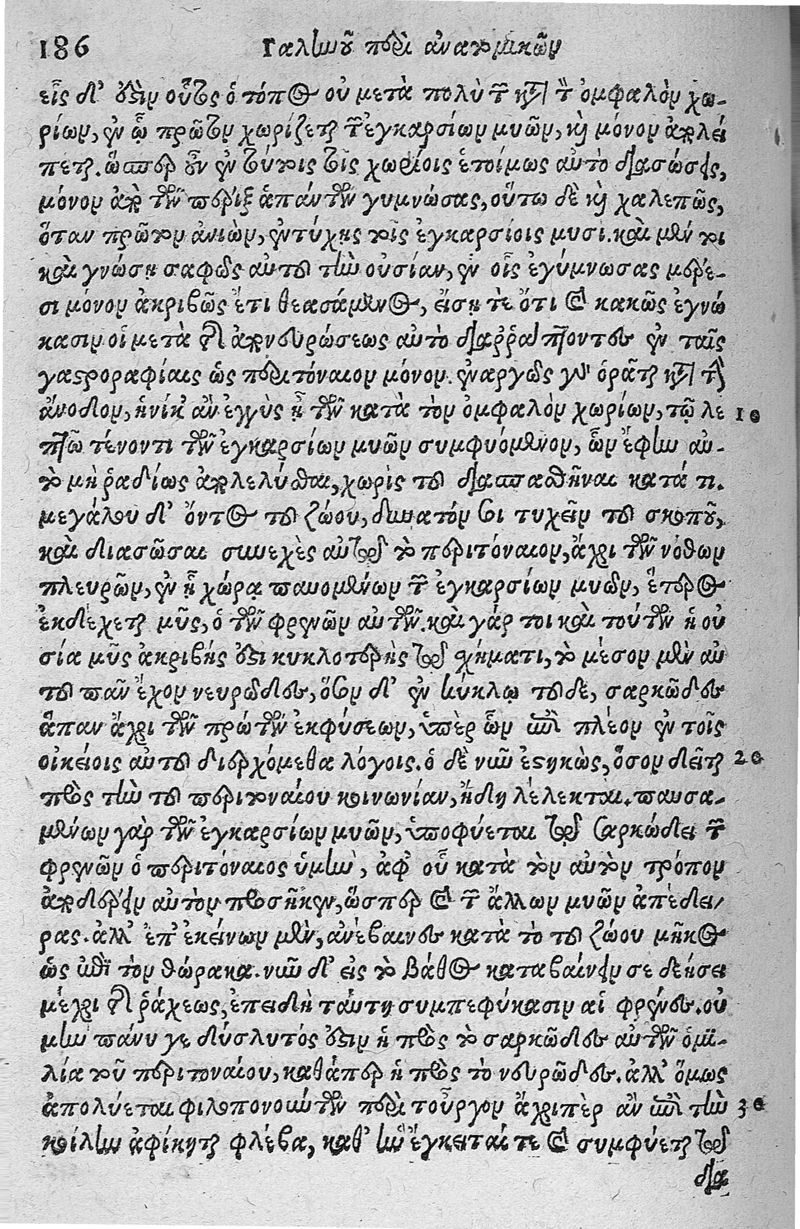 186 Γαληνοῦ περὶ ἀνατομικῶν
εἷς δ' ἐστὶν οὗτος ὁ τόπος οὐ μετὰ πολὺ τῶν κατὰ τὸν ὀμφαλὸν χω-
ρίων, ἐν ᾧ πρῶτον χωρίζεται τῶν ἐγκαρσίων μυῶν, καὶ μόνον ἀπολεί
πεται. ὥσπερ οὖν ἐν τούτοις τοῖς χωρίοις ἑτοίμως αὐτὸ διασώσεις,
μόνον ἀπὸ τῶν πέριξ ἁπάντων γυμνώσας, οὕτω δὲ καὶ χαλεπῶς,
ὅταν πρῶτον ἀνιὼν, ἐντύχῃς τοῖς ἐγκαρσίοις μυσί. καὶ μέν τοι
καὶ γνώσῃ σαφῶς αὐτοῦ τὴν οὐσίαν, ἐν οἷς ἐγύμνωσας μέρε-
σι μόνον ἀκριβῶς ἔτι θεασάμενος, εἴσῃ τε ὅτι καὶ κακῶς ἐγνώ
κασιν οἱ μετὰ τῆς ἀπονευρώσεως αὐτὸ διαῤῥάπτοντες ἐν ταῖς
γαστροραφίαις ὡς περιτόναιον μόνον. ἐναργῶς γὰρ ὁρᾶται κατὰ τὴν
ἄνοδον, ἡνίκ' ἂν ἐγγὺς ᾖ τῶν κατὰ τὸν ὀμφαλὸν χωρίων, τῷ λε 10
πτῷ τένοντι τῶν ἐγκαρσίων μυῶν συμφυόμενον, ὧν ἔφην αὐ-
τὸ μὴ ῥαδίως ἀπολελύσθαι, χωρὶς τοῦ διασπασθῆναι κατά τι.
μεγάλου δ' ὄντος τοῦ ζώου, δυνατόν σοι τυχεῖν τοῦ σκοποῦ,
καὶ διασῶσαι συνεχὲς αὑτῷ τὸ περιτόναιον, ἄχρι τῶν νόθων
πλευρῶν, ἐν ᾗ χώρᾳ παυομένων τῶν ἐγκαρσίων μυῶν, ἕτερος
ἐκδέχεται μῦς, ὁ τῶν φρενῶν αὐτῶν. καὶ γάρ τοι καὶ τούτων ἡ οὐ
σία μῦς ἀκριβής ἐστι κυκλοτερὴς τῷ σχήματι, τὸ μέσον μὲν αὐ
τοῦ πᾶν ἔχον νευρῶδες, ὅσον δ' ἐν κύκλῳ τοῦδε, σαρκῶδες
ἅπαν ἄχρι τῶν πρώτων ἐκφύσεων, ὑπὲρ ὧν ἐπὶ πλέον ἐν τοῖς
οἰκείοις αὐτοῦ διερχόμεθα λόγοις. ὁ δὲ νῦν ἐστηκὼς, ὅσον δεῖται 20
πρὸς τὴν τοῦ περιτοναίου κοινωνίαν, ἤδη λέλεκται. παυσα-
μένων γὰρ τῶν ἐγκαρσίων μυῶν, ὑποφύεται τῷ σαρκώδει τῶν
φρενῶν ὁ περιτόναιος ὑμὴν, ἀφ' οὗ κατὰ τὸν αὐτὸν τρόπον
ἀποδέρειν αὐτὸν προσῆκεν, ὥσπερ καὶ τῶν ἄλλων μυῶν ἀπέδει-
ρας. ἀλλ' ἐπ' ἐκείνων μὲν, ἀνέβαινες κατὰ τὸ τοῦ ζώου μῆκος
ὡς ἐπὶ τὸν θώρακα. νῦν δ' εἰς τὸ βάθος καταβαίνειν σε δεήσει
μέχρι τῆς ῥάχεως, ἐπειδὴ ταύτῃ συμπεφύκασιν αἱ φρένες. οὐ
μὴν πάνυ γε δύσλυτός ἐστιν ἡ πρὸς τὸ σαρκῶδες αὐτῶν ὁμι-
λία τοῦ περιτοναίου, καθάπερ ἡ πρὸς τὸ νευρῶδες. ἀλλ' ὅμως
ἀπολύεται φιλοπονούντων περὶ τοὖργον ἄχριπὲρ ἂν ἐπὶ τὴν 30
κοίλην ἀφίκηται φλέβα, καθ' ἣν ἔγκειταί τε καὶ συμφύεται τῷ
δια